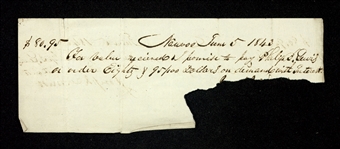 $80.95 Nauvoo June 5 1842
For value received I promise to pay Philip B. Lewis
or order Eighty & 95/100 Dollars on demand with interest